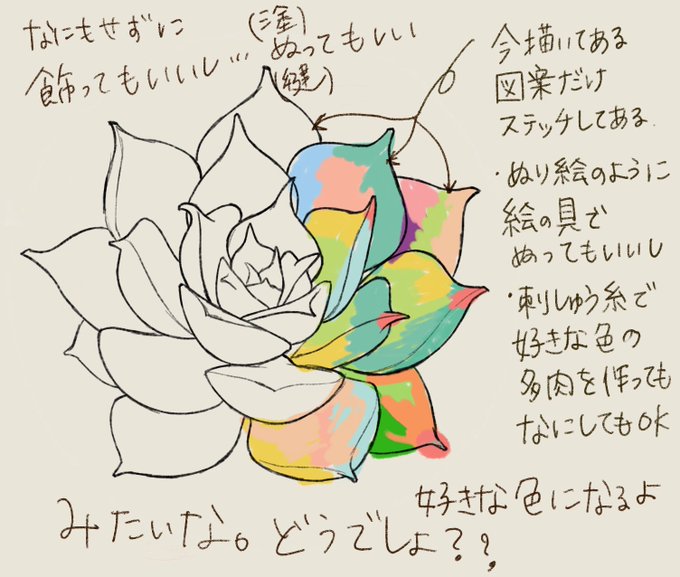 なにもせずに
飾ってもいいし…
(塗)
ぬってもいい
(縫)
今描いてある
図案だけ
ステッチしてある.
・ぬり絵のように
絵の具で
ぬってもいいし
・刺しゅう糸で
好きな色の
多肉を作っても
なにしてもOK
好きな色になるよ
みたいな。どうでしょ??